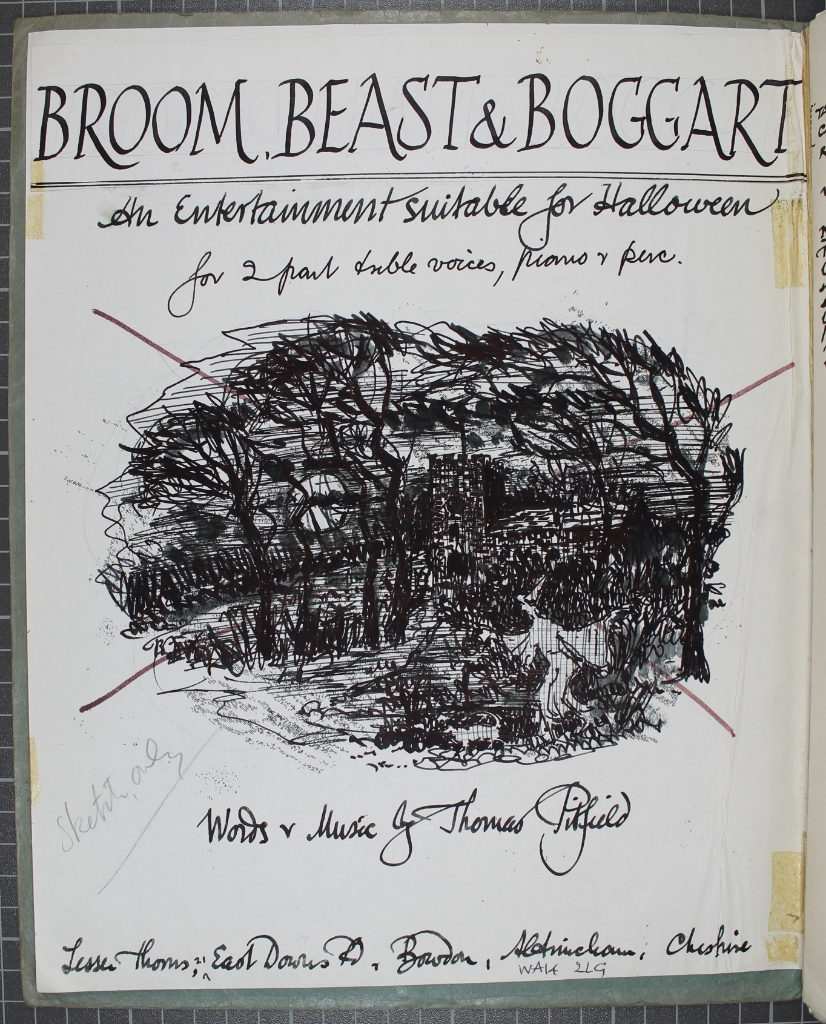 BROOM, BEAST & BOGGART
An Entertainment suitable for Halloween
for 2 part treble voices, piano & perc.
Sketch, only
Words & Music by Thomas Pitfield
Lesser Thorns, 21 East Downs Rd, Bowdon, Altrincham, Cheshire
WA14 2LG